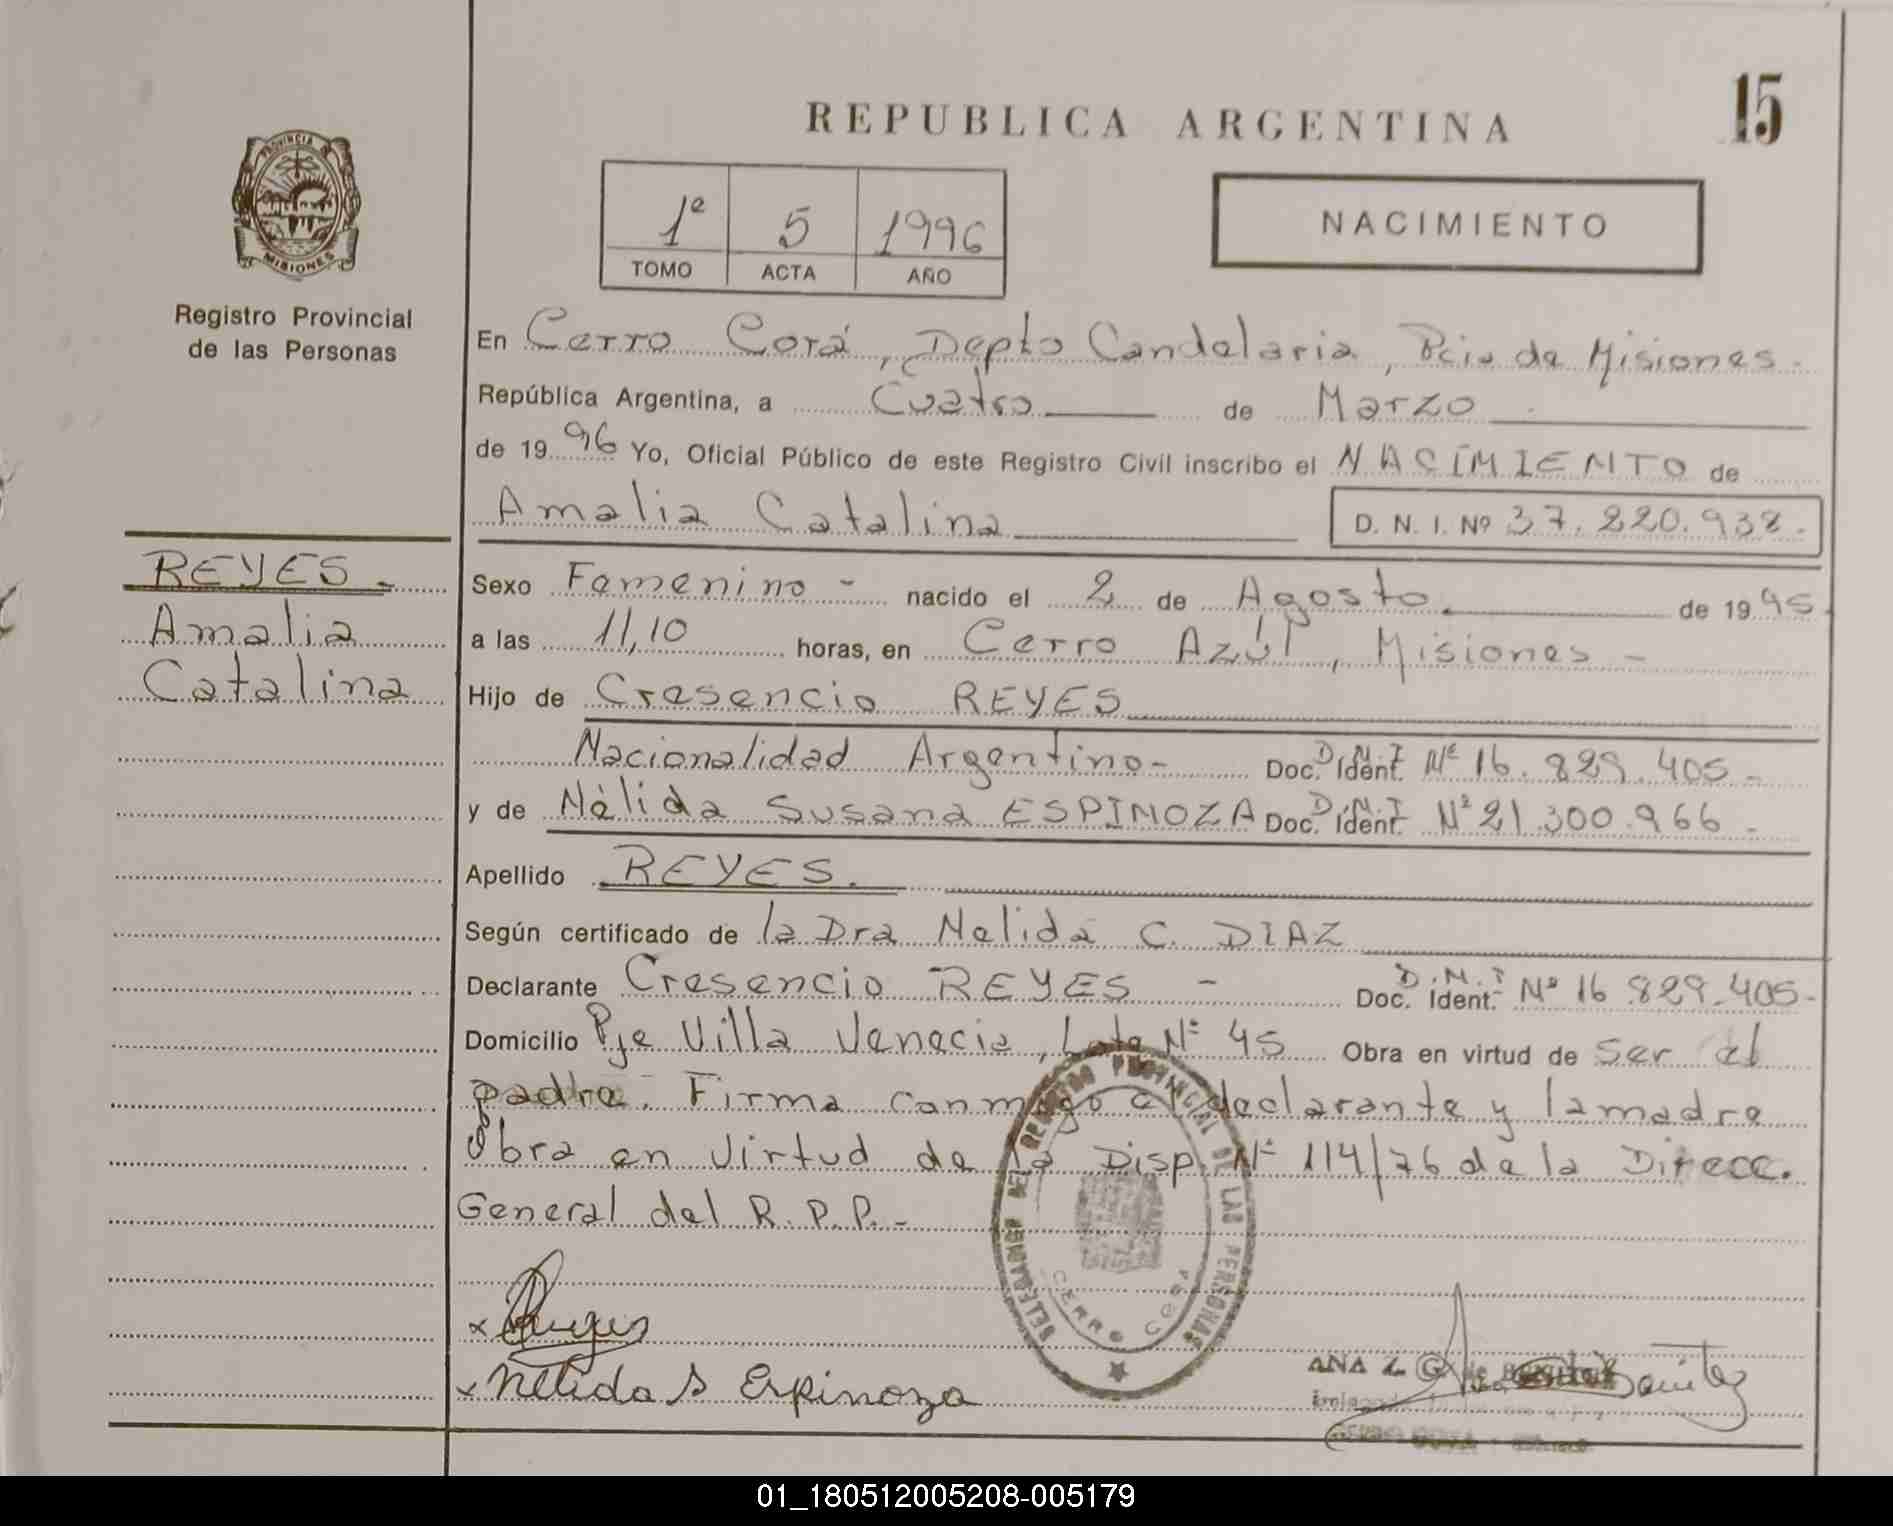 15
REPUBLICA ARGENTINA
PROVINCIA D
MISIONES
Registro Provincial
de las Personas
1º 5 1996
TOMO ACTA AÑO
NACIMIENTO
En Cerro Corá, Depto Candelaria, Pcia de Misiones.
República Argentina, a Cuatro de Marzo
de 1996 Yo, Oficial Público de este Registro Civil inscribo el NACIMIENTO de
Amalia Catalina D. N. I. Nº 37.220.938.
REYES
Amalia
Catalina
Sexo Femenino - nacido el 2 de Agosto de 1995
a las 11,10 horas, en Cerro Azúl, Misiones -
Hijo de Cresencio REYES
Nacionalidad Argentino- Doc. Ident. D.N.I Nº 16.829.405-
y de Nélida Susana ESPINOZA Doc. Ident. D.N.I Nº 21.300.966-
Apellido REYES.
Según certificado de la Dra Nelida C. DIAZ
Declarante Cresencio REYES - Doc. Ident. D.N.I Nº 16.829.405-
Domicilio Pje Villa Venecia, Lote Nº 45 Obra en virtud de ser el
padre. Firma conmigo el declarante y la madre
Obra en Virtud de la Disp. Nº 114/76 de la Direcc.
General del R.P.P.-
DELEGACION DEL REGISTRO PROVINCIAL DE LAS PERSONAS
CERRO CORA
x Reyes
x Nelida S Espinoza
ANA Z. G. de
01_180512005208-005179